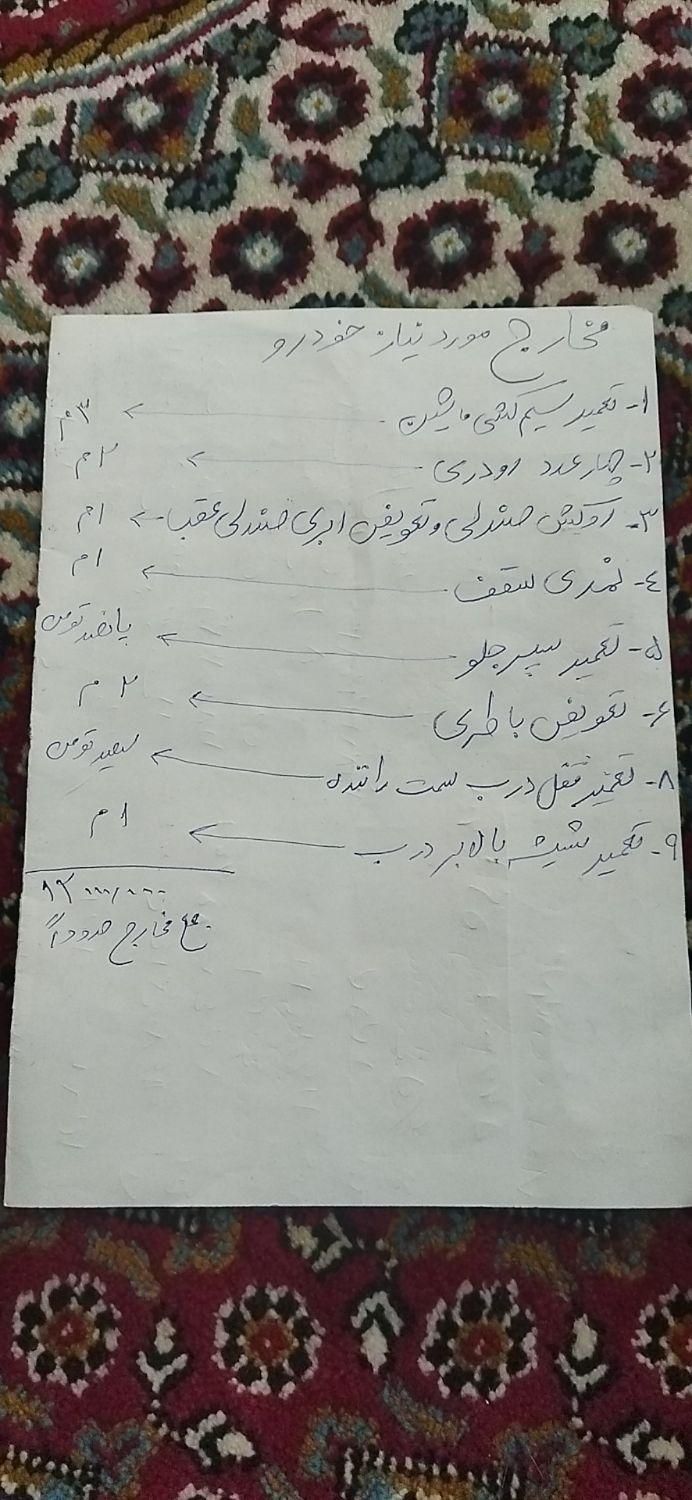 مخارج مورد نیاز خودرو
۱- تعمیر سیم کشی ماشین ← ۳م
۲- چهار عدد رودری ← ۲م
۳- روکش صندلی و تعویض ابری صندلی عقب ← ۱م
٤- نمدی سقف ← ۱م
۵- تعمیر سپر جلو ← پانصد تومن
۶- تعویض باطری ← ۲م
۸- تعمیر قفل درب سمت راننده ← سیصد تومن
۹- تعمیر شیشه بالابر درب ← ۱م
۱۲
جمع مخارج حدوداً